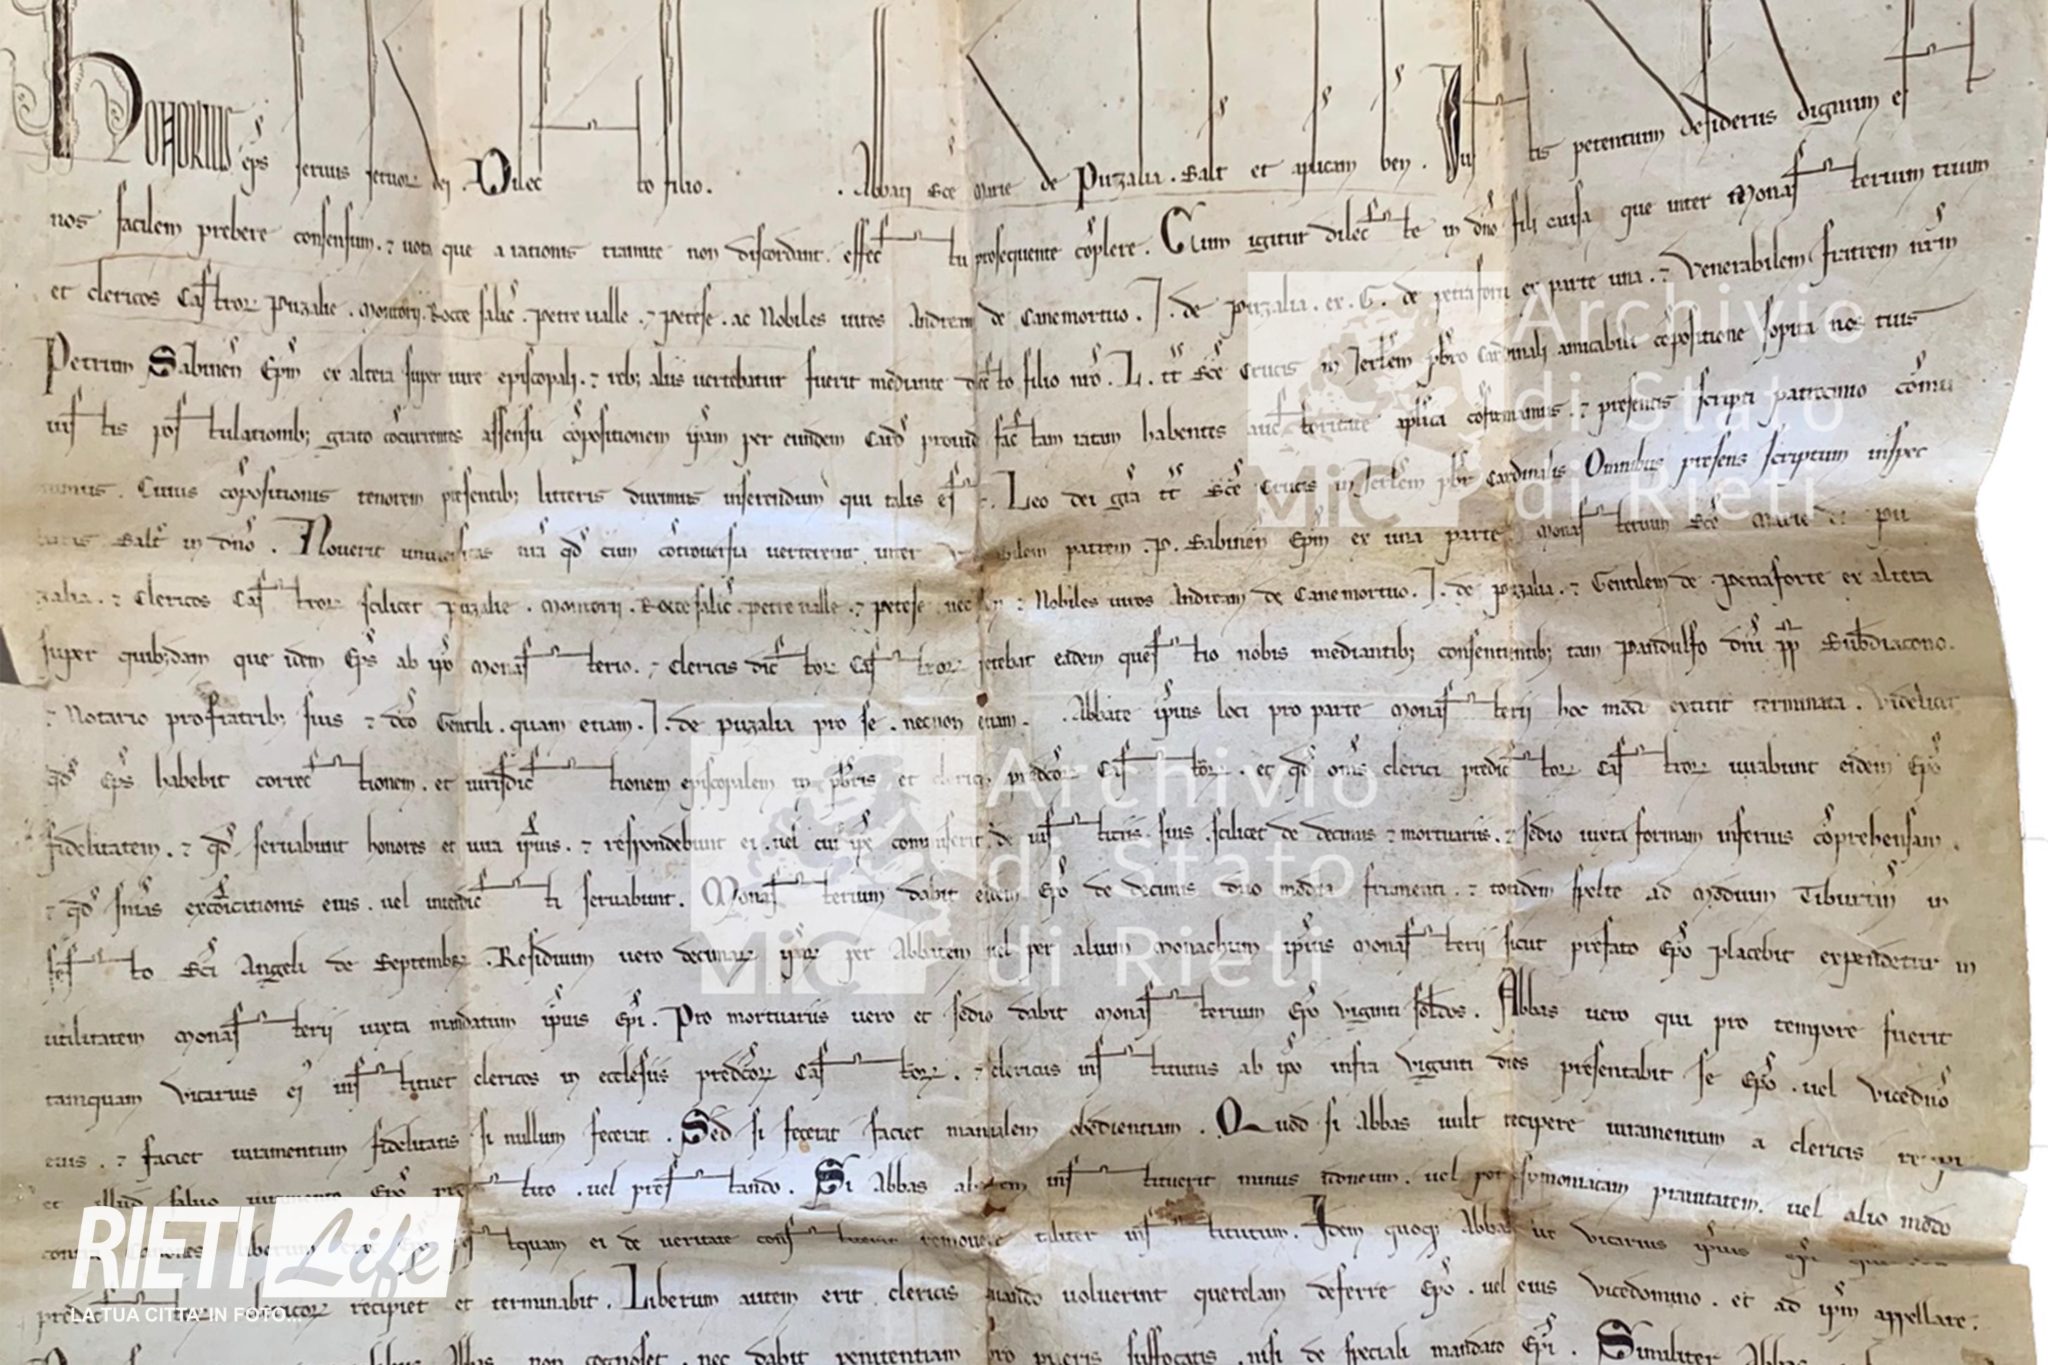 Honorius ep̄s servus servor dei . Dilecto filio . . Abbati Sc̄e Marie de Puzalia . Salt et aplicam ben . Justis petentium desideriis dignum e
nos facilem prebere consensum . ⁊ vota que a rationis tramite non discordant . effectu prosequente cōplere . Cum igitur dilecte in dn̄o fili causa que inter Monasterium tuum
et clericos Castror Puzalie . Montorii . Rocce salic̄ . Petre valle . ⁊ Petese . ac Nobiles viros Andream de Canemortuo . J . de Puzalia . ex . G . de petraforti ex parte una . ⁊ Venerabilem fratrem nr̄m
Petrum Sabinen̄ Ep̄m ex altera super iure episcopali . ⁊ reb; aliis vertebatur fuerit mediante dicto filio nr̄o . L . tt̄ Sc̄e Crucis in Jerl̄em pb̄ro Cardinali amicabili cōpositione sopita nos tuis
iustis postulationib; grato cōcurrentes assensu cōpositionem ip̄am per eundem Card̄ provid factam ratam habentes auctoritate aplic̄a cōfirmamus . ⁊ presentis scripti patrocinio cōmu
nimus . Cuius cōpositionis tenorem presentib; litteris duximus inserendum qui talis est . Leo dei gr̄a tt̄ Sc̄e Crucis in Jerl̄em pb̄r Cardinalis Omnibus presens scriptum inspec
turis Salt̄ in dn̄o . Noverit universitas vr̄a qd̄ cum cōtroversia verteretur inter Venerabilem patrem . P . Sabinen̄ Ep̄m ex una parte Monasterium Sc̄e Marie de Pu
zalia . ⁊ Clericos Castror scilicet Puzalie . Montorii . Rocce salic̄ . Petre valle . ⁊ Petese nec non ⁊ Nobiles viros Andream de Canemortuo . J . de Puzalia . ⁊ Gentilem de Petraforte ex altera
super quib;dam que idem Ep̄s ab ip̄o Monasterio . ⁊ clericis dictor Castror petebat eadem questio nobis mediantib; consentientib; tam Pandulfo dn̄i pp̄ Subdiacono .
⁊ Notario pro fratrib; suis ⁊ dc̄o Gentili . quam etiam . J . de Puzalia pro se . necnon etiam . . Abbate ip̄ius loci pro parte Monasterii hoc modo extitit terminata . Videlicet
qd̄ Ep̄s habebit correctionem . et iurisdictionem episcopalem in pb̄ris et clericis predc̄or Castror . et qd̄ om̄s clerici predictor Castror iurabunt eidem Ep̄o
fidelitatem . ⁊ qd̄ servabunt honores et iura ip̄ius . ⁊ respondebunt ei . vel cui ip̄e commiserit de iustitiis suis . scilicet de decimis ⁊ mortuariis . ⁊ sedio iuxta formam inferius cōprehensam .
⁊ qd̄ sn̄ias excōicationis eius . vel interdicti servabunt . Monasterium dabit eidem Ep̄o de decimis duo modia frumenti . ⁊ totidem spelte ad Modium Tiburtin̄ in
festo Sc̄i Angeli de Septembr . Residuum vero decimar ip̄ar per Abbatem vel per alium Monachum ip̄ius Monasterii sicut prefato Ep̄o placebit expendetur in
utilitatem Monasterii iuxta mandatum ip̄ius Ep̄i . Pro mortuariis vero et sedio dabit Monasterium Ep̄o viginti solidos . Abbas vero qui pro tempore fuerit
tamquam Vicarius ei' instituet clericos in ecclesiis predc̄or Castror . ⁊ clericus institutus ab ip̄o infra viginti dies presentabit se Ep̄o . vel Vicedn̄o
eius . ⁊ faciet iuramentum fidelitatis si nullum fecerit . Sed si fecerit faciet manualem obedientiam . Quod si Abbas vult recipere iuramentum a clericis recipi
et illud salvo iuramento Ep̄o prestito . vel prestando . Si Abbas aliquem instituerit minus idoneum . vel per symoniacam pravitatem . vel alio modo
contra canones liberum erit Ep̄o postquam ei de veritate constiterit removere taliter institutum . Idem quoq; Abbas ut Vicarius ip̄ius Ep̄i
clericor recipiet et terminabit . Liberum autem erit clericis quando voluerint querelam deferre Ep̄o . vel eius vicedomino . et ad ip̄m appellare .
Abbas non cognoscet . nec dabit penitentiam pro pueris suffocatis . nisi de speciali mandato Ep̄i . Similiter Abbas
Archivio
di Stato
di Rieti
MiC
Archivio
di Stato
di Rieti
MiC
RIETI Life
LA TUA CITTA' IN FOTO...